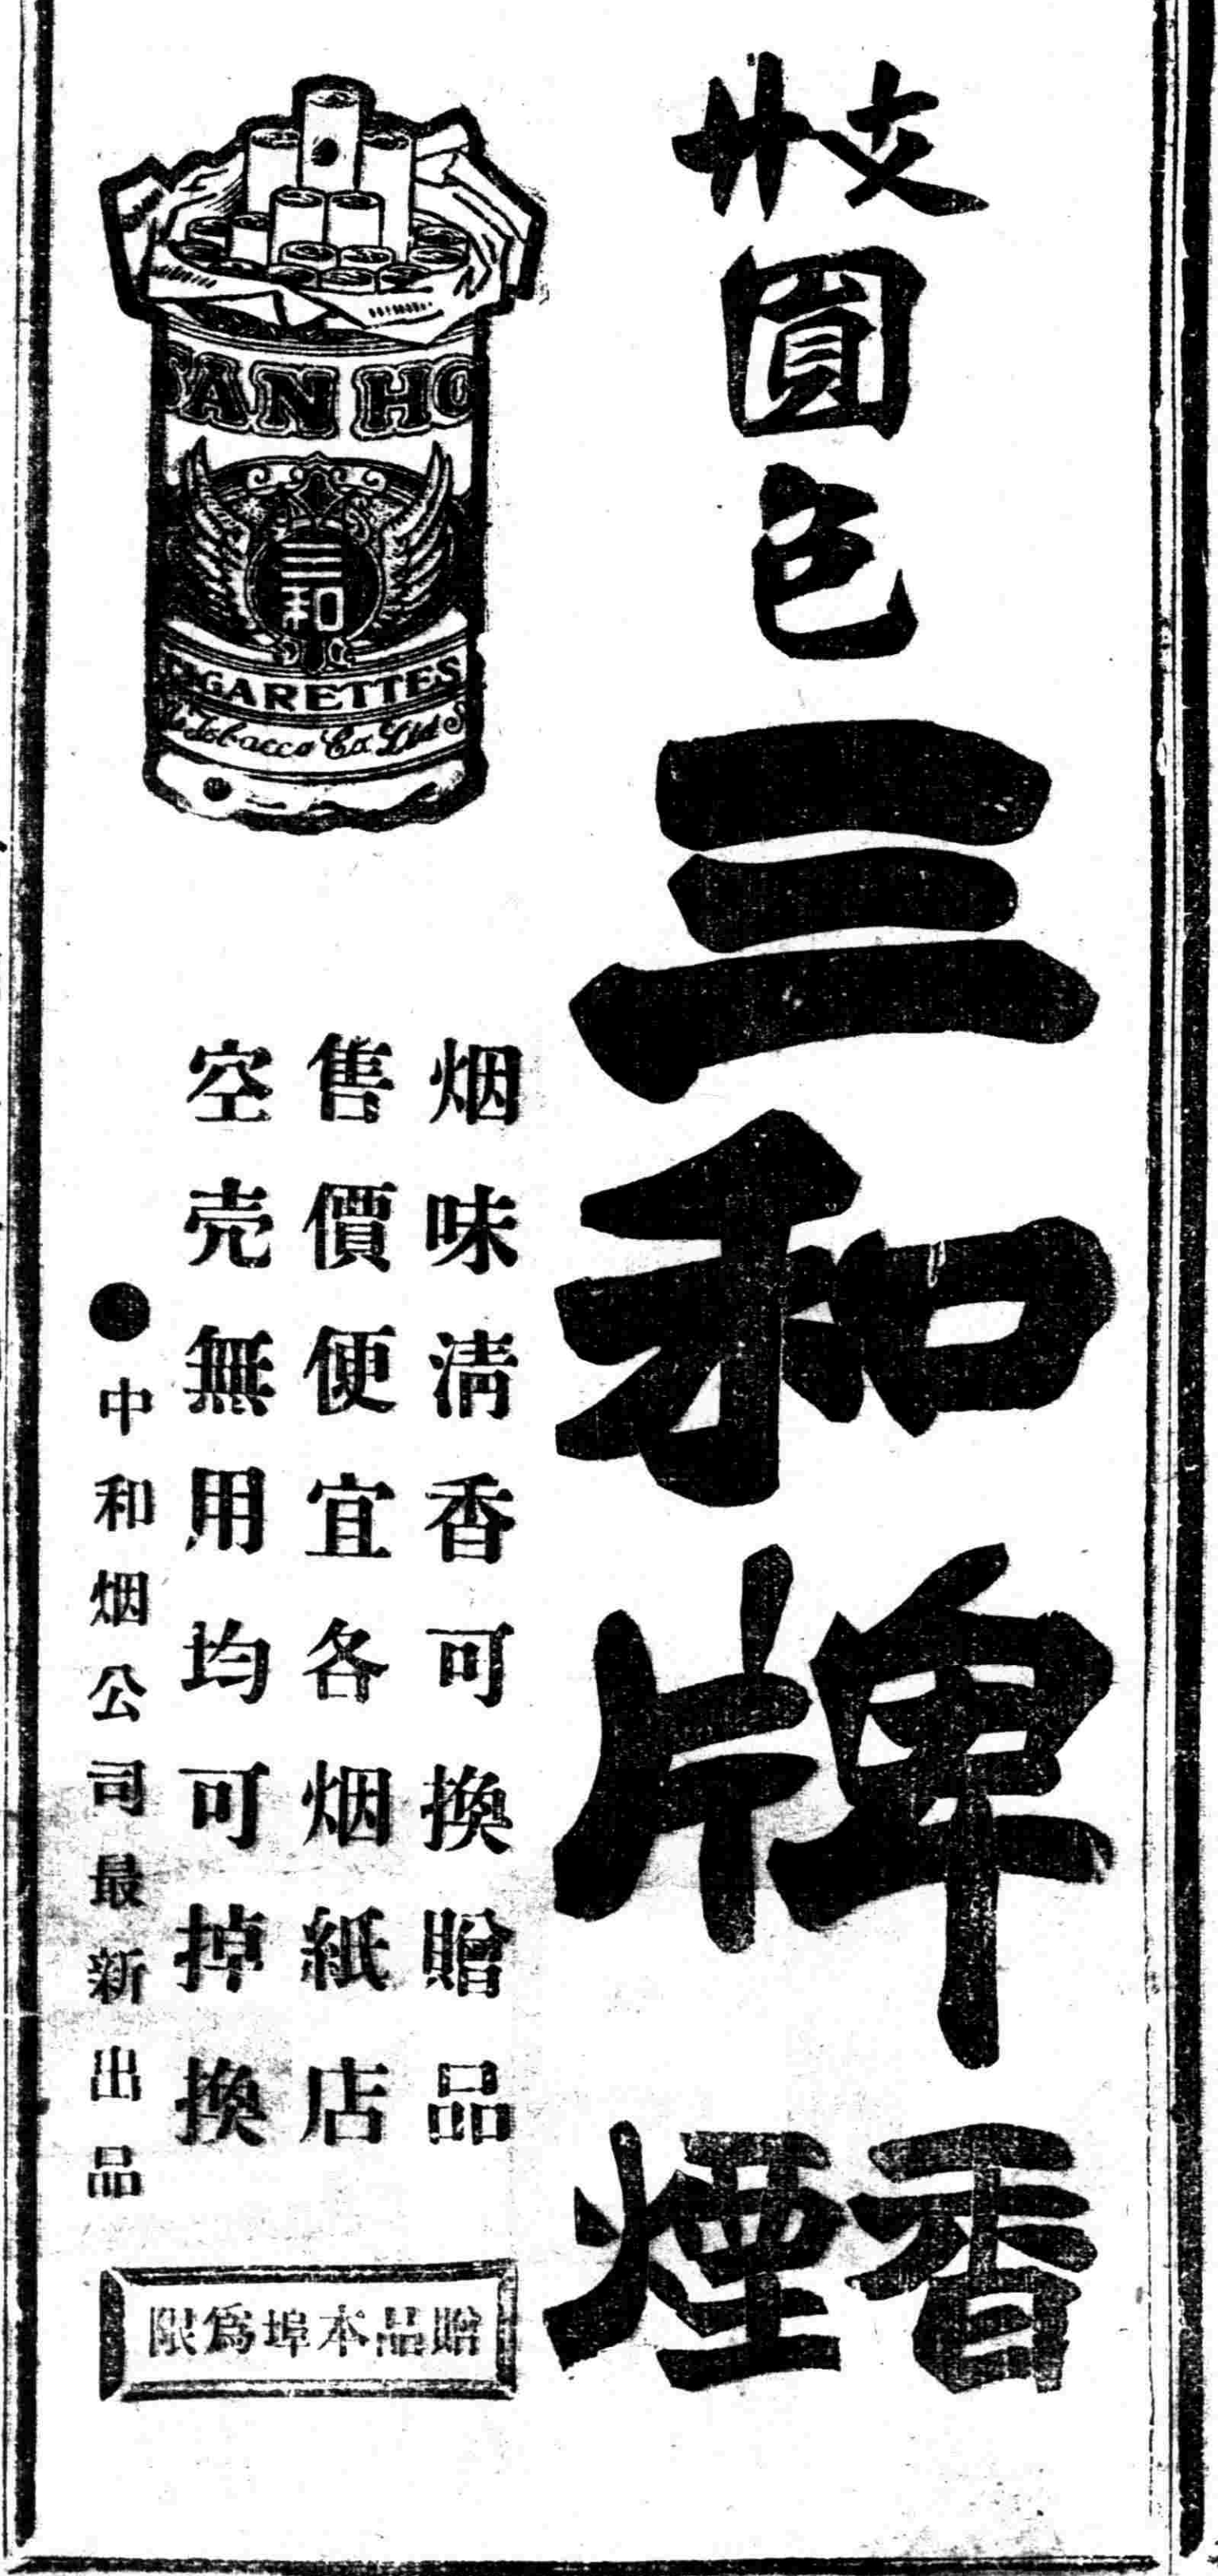 廿支圓包三和牌香煙
烟味清香可換贈品
售價便宜各烟紙店
空壳無用均可掉換
●中和烟公司最新出品
贈品本埠爲限
SAN HO
三和
CIGARETTES
Tobacco Co. Ltd